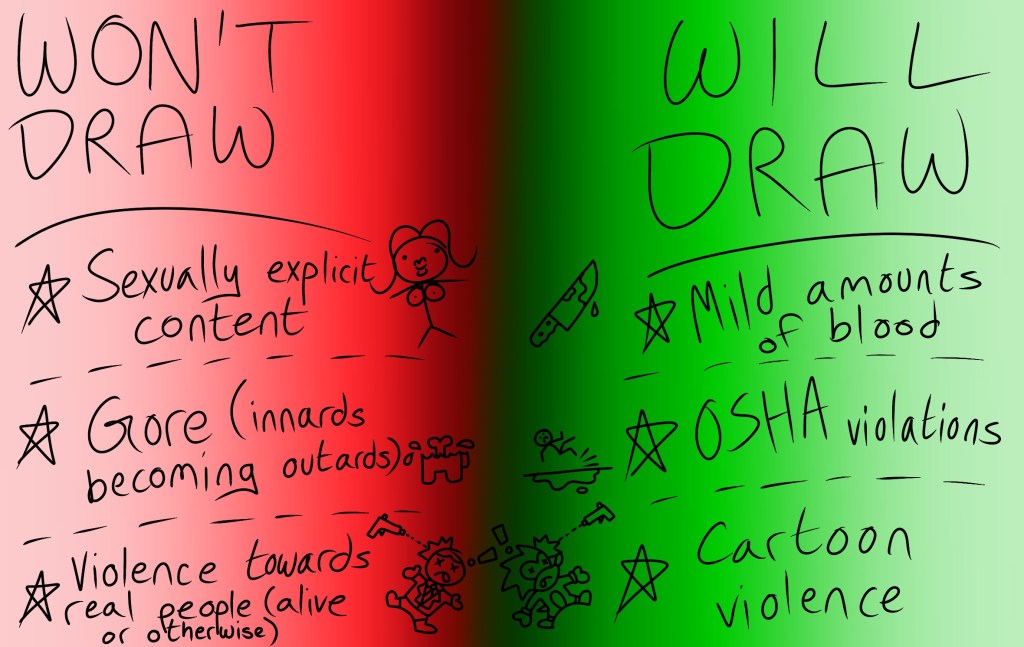 WON'T
DRAW
Sexually explicit
content
Gore (innards
becoming outards)
Violence towards
real people (alive
or otherwise)
WILL
DRAW
Mild amounts
of blood
OSHA violations
Cartoon
violence